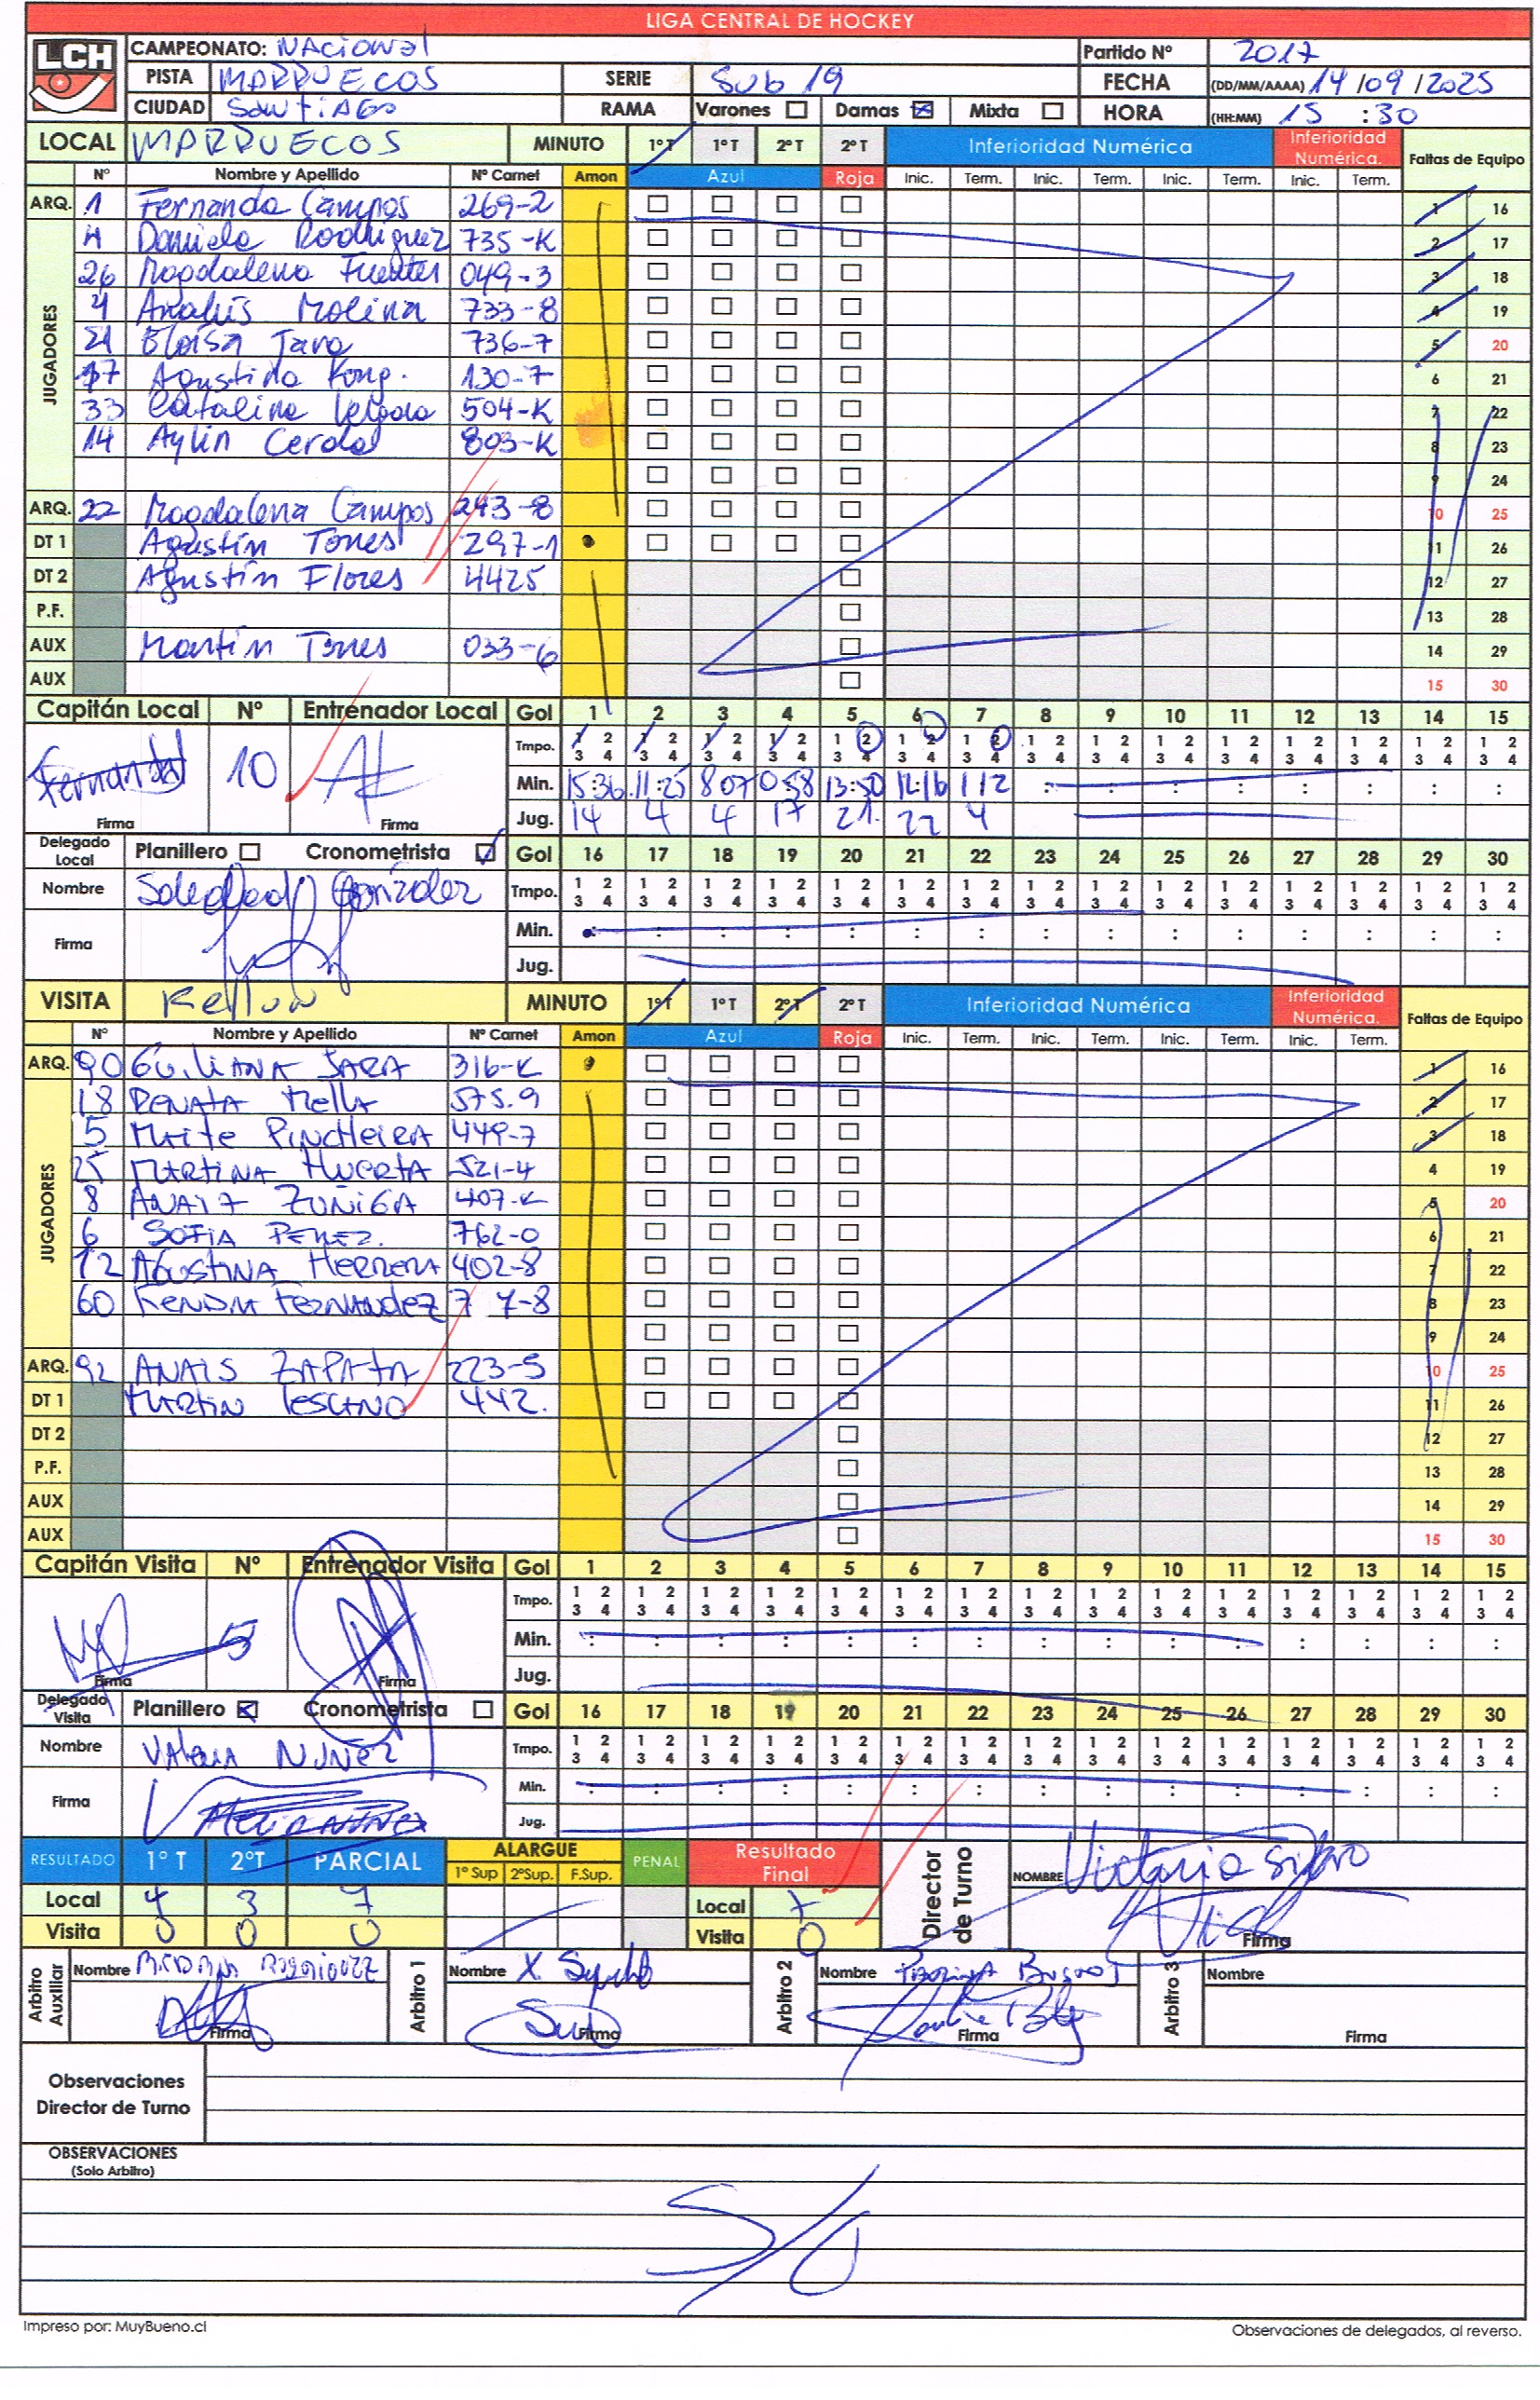 LIGA CENTRAL DE HOCKEY
LCH
CAMPEONATO: NAcional Partido Nº 2017
PISTA MARRUECOS SERIE Sub 19 FECHA (DD/MM/AAAA) 14/09/2025
CIUDAD SANTIAGO RAMA Varones Damas Mixta HORA (HH:MM) 15:30
LOCAL MARRUECOS MINUTO 1ºT 1ºT 2ºT 2ºT Inferioridad Numérica Inferioridad Numérica. Faltas de Equipo
Nº Nombre y Apellido Nº Carnet Amon Azul Roja Inic. Term. Inic. Term. Inic. Term. Inic. Term.
ARQ. 1 Fernanda Campos 269-2 1 16
JUGADORES
Daniela Rodriguez 735-K 2 17
26 Magdalena Fuentes 049-3 3 18
4 Anahis Molina 733-8 4 19
21 Eloisa Jara 736-7 5 20
17 Agustina 130-7 6 21
33 Catalina Vergara 504-K 7 22
14 Aylin Cerda 803-K 8 23
9 24
ARQ. 22 Magdalena Campos 243-8 10 25
DT 1 Agustín Torres 297-1 11 26
DT 2 Agustín Flores 4425 12 27
P.F. 13 28
AUX Martín Torres 033-6 14 29
AUX 15 30
Capitán Local Nº Entrenador Local Gol 1 2 3 4 5 6 7 8 9 10 11 12 13 14 15
Fernanda 10 Tmpo. 1 2 1 2 1 2 1 2 1 2 1 2 1 2 1 2 1 2 1 2 1 2 1 2 1 2 1 2 1 2
3 4 3 4 3 4 3 4 3 4 3 4 3 4 3 4 3 4 3 4 3 4 3 4 3 4 3 4 3 4
Min. 15:36 11:25 8 07 0:58 13:50 12:16 1 12 : : : : : : : :
Firma Firma Jug. 14 4 4 17 21. 22 4
Delegado Local Planillero Cronometrista Gol 16 17 18 19 20 21 22 23 24 25 26 27 28 29 30
Nombre Soledad González Tmpo. 1 2 1 2 1 2 1 2 1 2 1 2 1 2 1 2 1 2 1 2 1 2 1 2 1 2 1 2 1 2
3 4 3 4 3 4 3 4 3 4 3 4 3 4 3 4 3 4 3 4 3 4 3 4 3 4 3 4 3 4
Firma Min. : : : : : : : : : : : : : : :
Jug.
VISITA MINUTO 1ºT 1ºT 2ºT 2ºT Inferioridad Numérica Inferioridad Numérica. Faltas de Equipo
Nº Nombre y Apellido Nº Carnet Amon Azul Roja Inic. Term. Inic. Term. Inic. Term. Inic. Term.
ARQ. 90 GUiLiANA JARA 316-K 1 16
JUGADORES
18 RENATA Mella 575.9 2 17
5 MAITE PINCHEIRA 449-7 3 18
25 MARTINA HUERTA 521-4 4 19
8 ZUÑIGA 407-K 5 20
6 SOFIA PEREZ. 762-0 6 21
12 AGUSTINA HERRERA 402-8 7 22
60 FERNANDEZ 7 7-8 8 23
9 24
ARQ. 92 ANAIS ZAPATA 223-5 10 25
DT 1 MARTIN LESCANO 442. 11 26
DT 2 12 27
P.F. 13 28
AUX 14 29
AUX 15 30
Capitán Visita Nº Entrenador Visita Gol 1 2 3 4 5 6 7 8 9 10 11 12 13 14 15
5 Tmpo. 1 2 1 2 1 2 1 2 1 2 1 2 1 2 1 2 1 2 1 2 1 2 1 2 1 2 1 2 1 2
3 4 3 4 3 4 3 4 3 4 3 4 3 4 3 4 3 4 3 4 3 4 3 4 3 4 3 4 3 4
Min. : : : : : : : : : : : : : : :
Firma Firma Jug.
Delegado Visita Planillero Cronometrista Gol 16 17 18 19 20 21 22 23 24 25 26 27 28 29 30
Nombre NUÑEZ Tmpo. 1 2 1 2 1 2 1 2 1 2 1 2 1 2 1 2 1 2 1 2 1 2 1 2 1 2 1 2 1 2
3 4 3 4 3 4 3 4 3 4 3 4 3 4 3 4 3 4 3 4 3 4 3 4 3 4 3 4 3 4
Firma Min. : : : : : : : : : : : : : : :
Jug.
RESULTADO 1º T 2ºT PARCIAL ALARGUE PENAL Resultado Final Director de Turno NOMBRE Victoria
1º Sup 2ºSup. F.Sup.
Local 4 3 7 Local 7
Visita 0 0 0 Visita 0 Firma
Arbitro Auxiliar Nombre Arbitro 1 Nombre X Arbitro 2 Nombre Arbitro 3 Nombre
Firma Firma Firma Firma
Observaciones
Director de Turno
OBSERVACIONES
(Solo Arbitro)
S/O
Impreso por: MuyBueno.cl Observaciones de delegados, al reverso.